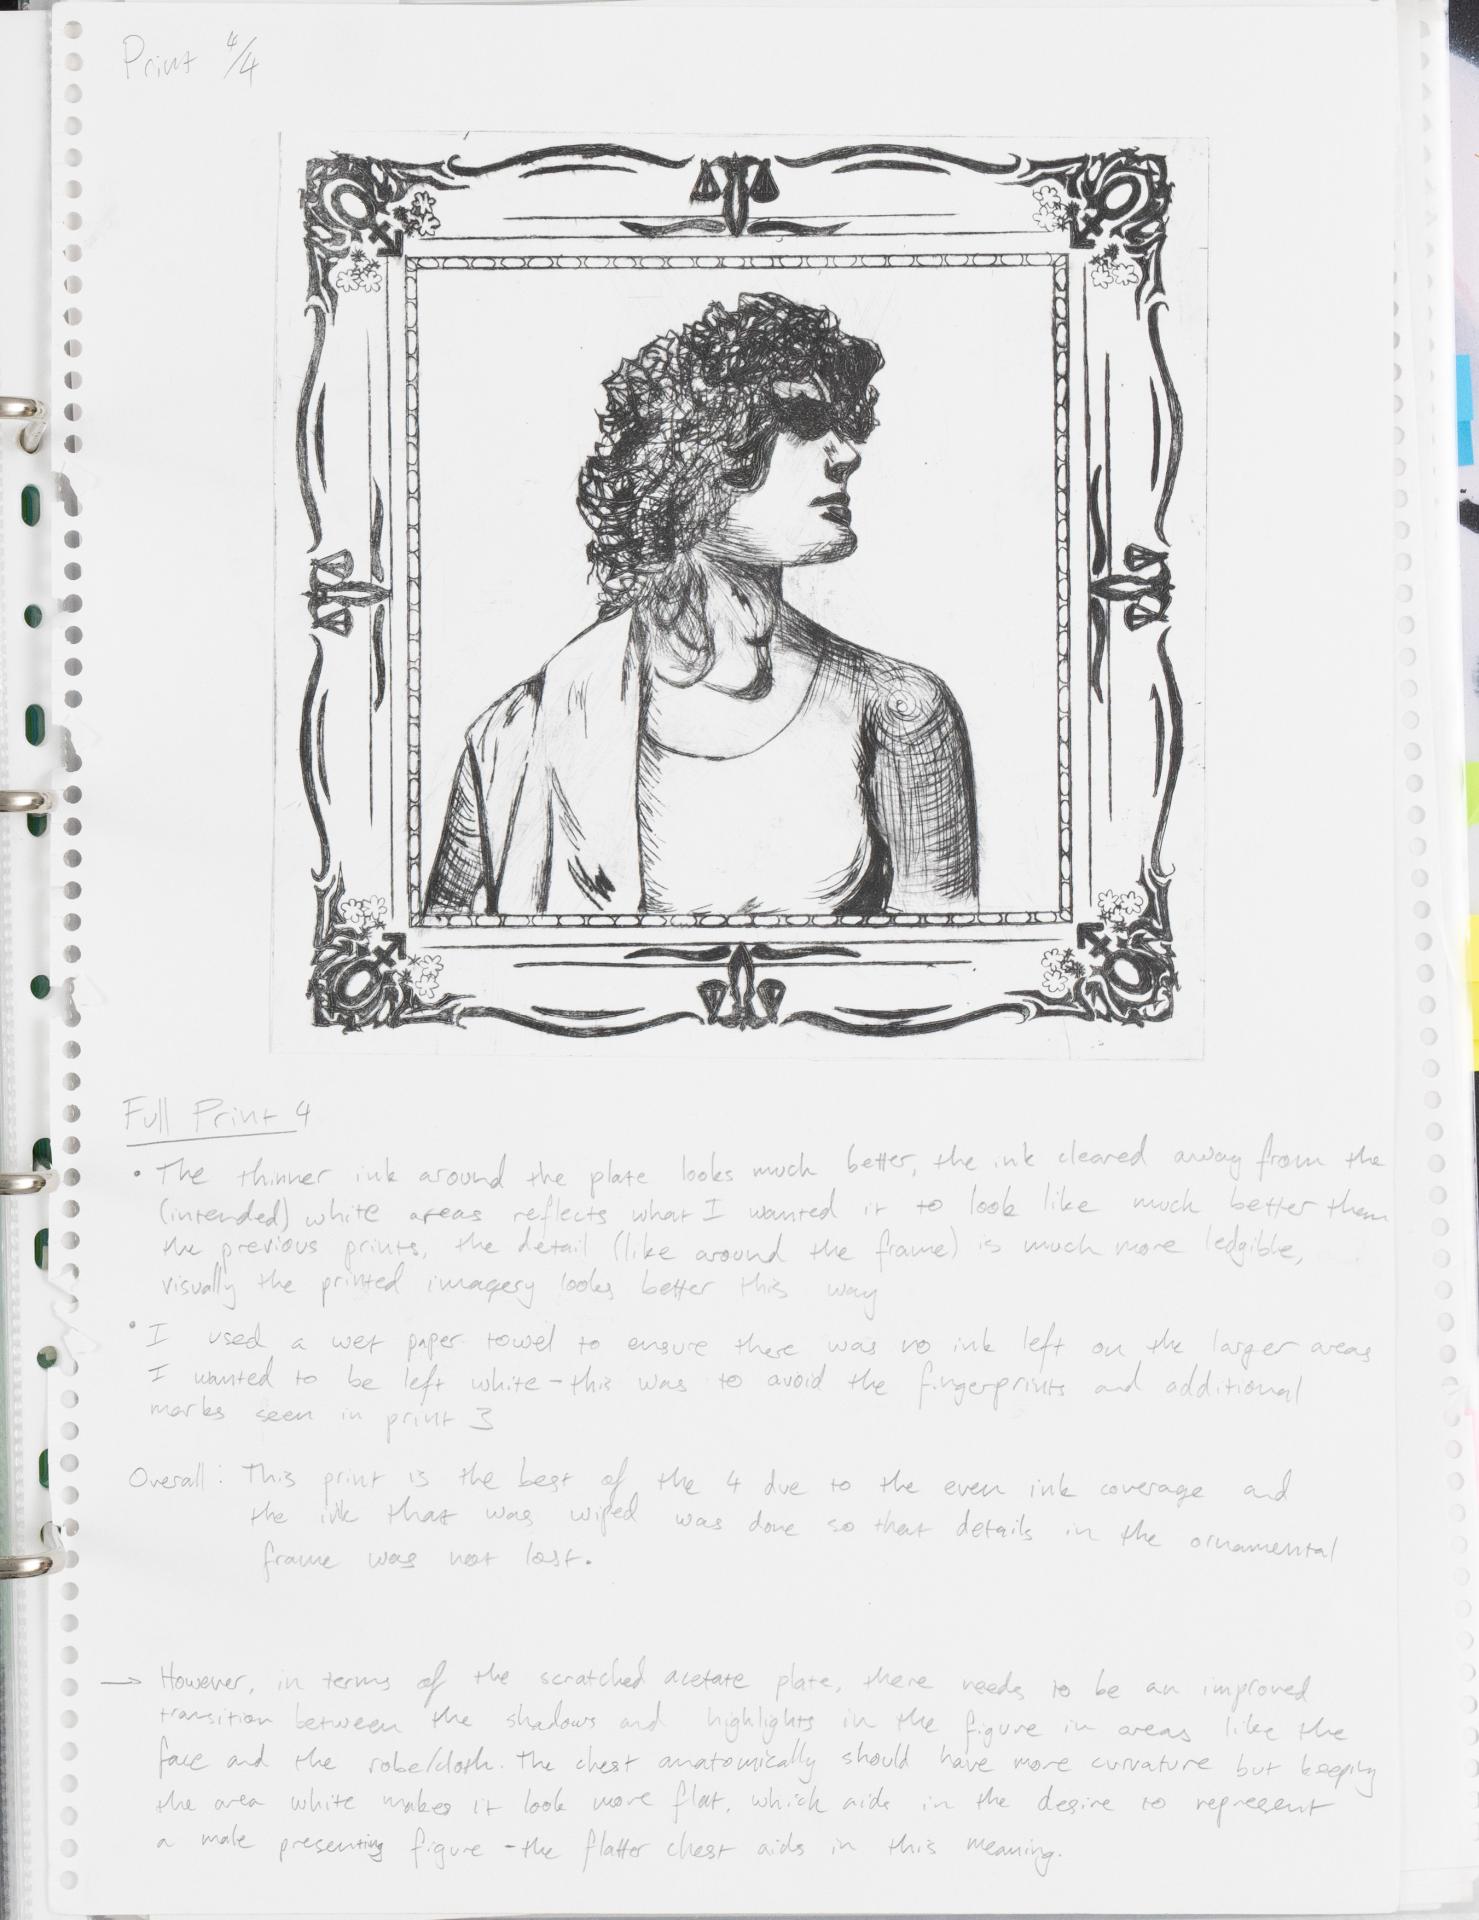 Print 4/4
Full Print 4
• The thinner ink around the plate looks much better, the ink cleared away from the
(intended) white areas reflects what I wanted it to look like much better then
the previous prints, the detail (like around the frame) is much more ledgible,
visually the printed imagery looks better this way
• I used a wet paper towel to ensure there was no ink left on the larger areas
I wanted to be left white - this was to avoid the fingerprints and additional
marks seen in print 3
Overall: This print is the best of the 4 due to the even ink coverage and
the ink that was wiped was done so that details in the ornamental
frame was not lost.
→ However, in terms of the scratched acetate plate, there needs to be an improved
transition between the shadows and highlights in the figure in areas like the
face and the robe/cloth. The chest anatomically should have more curvature but keeping
the area white makes it look more flat, which aids in the desire to represent
a male presenting figure - the flatter chest aids in this meaning.